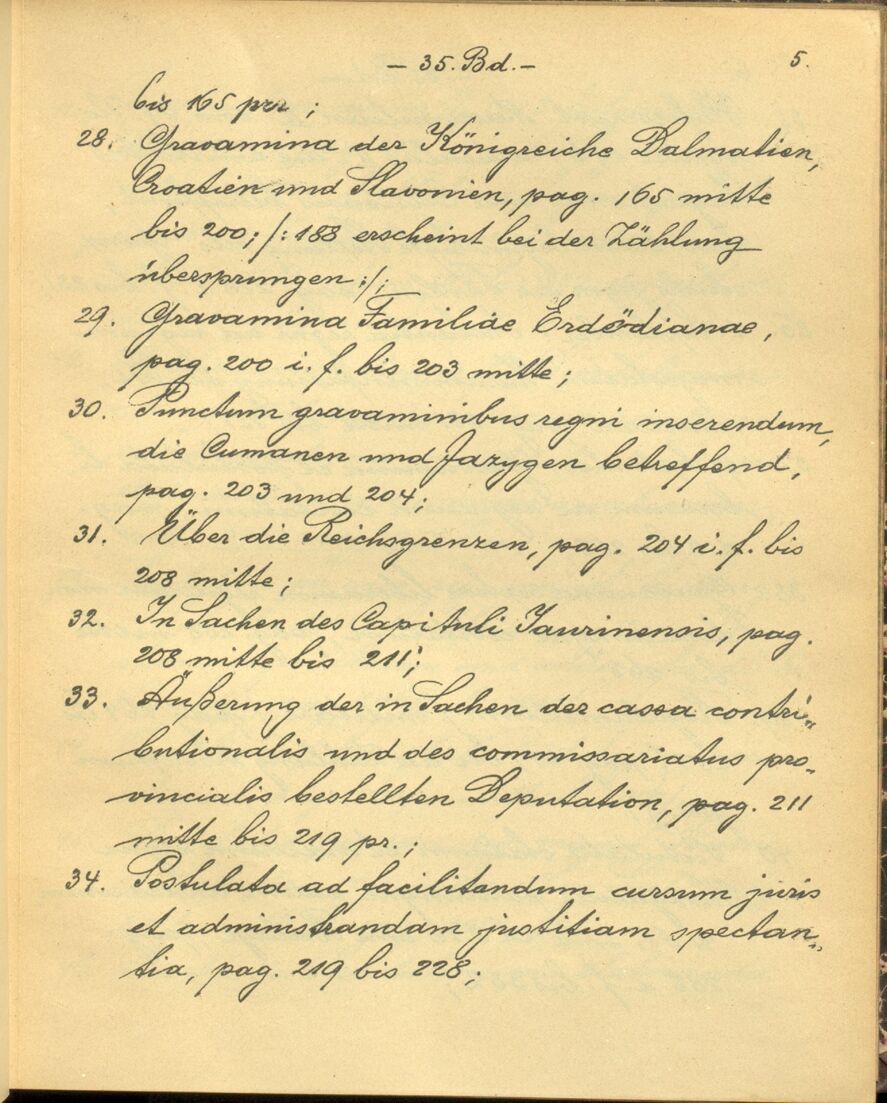 – 35. Bd. –
5.
bis 165 pr ;
28. Gravamina der Königreiche Dalmatien,
Croatien und Slavonien, pag. 165 mitte
bis 200; /: 188 erscheint bei der Zählung
übersprungen :/;
29. Gravamina Familiae Erdödianae,
pag. 200 i. f. bis 203 mitte;
30. Punctum gravaminibus regni inserendum,
die Cumanen und Jazygen betreffend,
pag. 203 und 204;
31. Über die Reichsgrenzen, pag. 204 i. f. bis
208 mitte;
32. In Sachen des Capituli Jaurinensis, pag.
208 mitte bis 211;
33. Äußerung der in Sachen der cassa contri„
butionalis und des commissariatus pro„
vincialis bestellten Deputation, pag. 211
mitte bis 219 pr.;
34. Postulata ad facilitandum cursum juris
et administrandam justitiam spectan„
tia, pag. 219 bis 228;